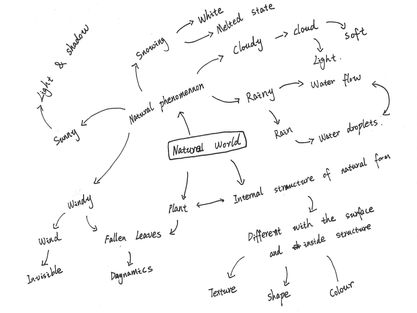 White
Snowing
Melted state
Light & shadow
Cloudy
cloud
Soft
Light.
Natural phenomennon
Rainy
Water flow
Sunny
Rain
Water droplets.
Natural World
Windy
Plant
Internal structure of natural form
Wind
Fallen Leaves
Different with the surface
and inside structure
Invisible
Dagnamics
Texture
Shape
Colour